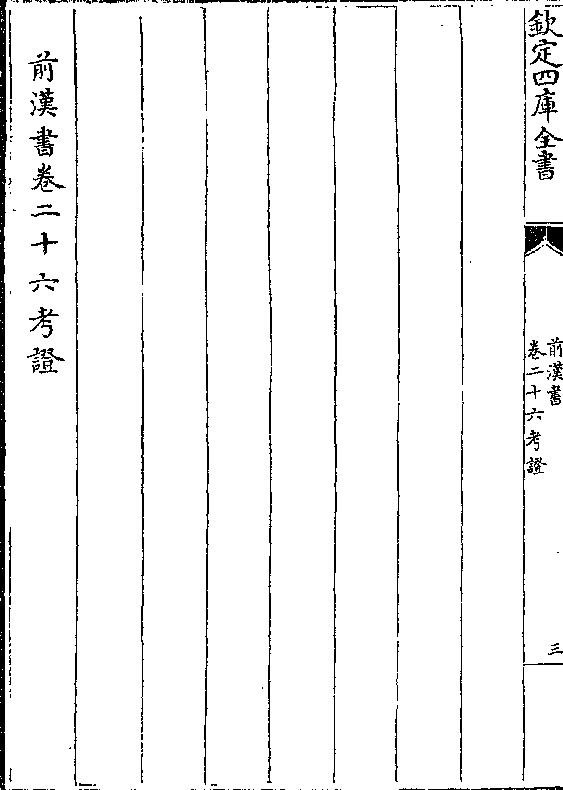 欽定四庫全書
前漢書
卷二十六考證
三
前漢書卷二十六考證